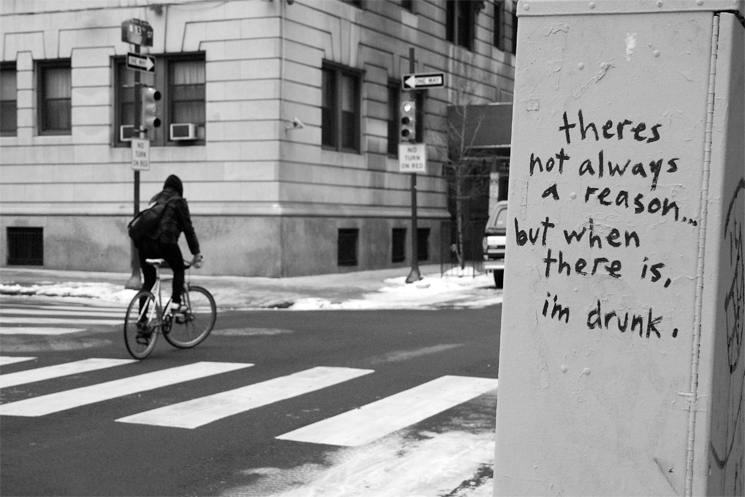 ONE WAY
ONE WAY
NO
TURN
ON RED
NO
TURN
ON RED
theres
not always
a reason...
but when
there is,
i'm drunk.